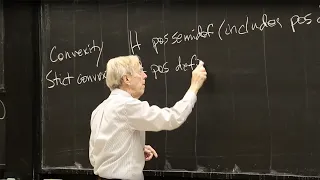 Convexity H pos semidef (includes pos
Strict conv pos def